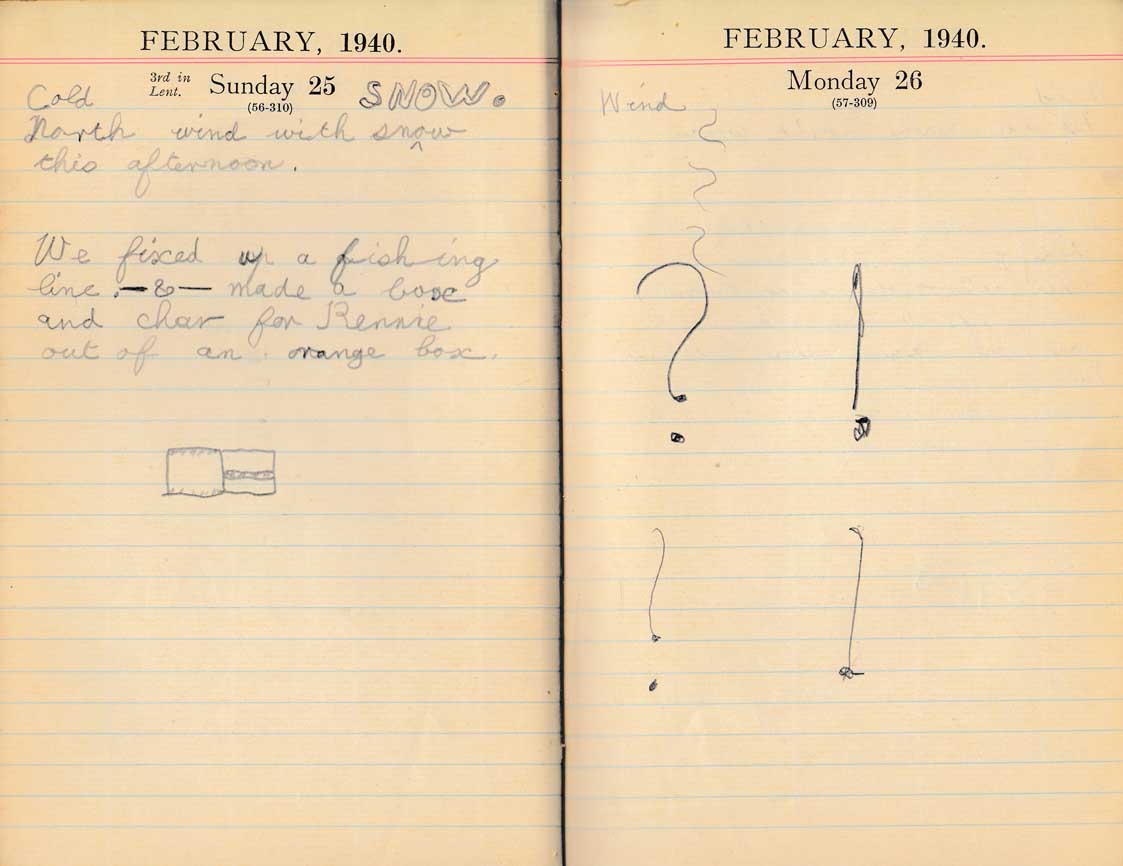 FEBRUARY, 1940.
3rd in Lent. Sunday 25
(56-310)
SNOW.
Cold
North wind with snow
this afternoon.
We fixed up a fishing
line.—&— made a box
and char for Rennie
out of an orange box.
FEBRUARY, 1940.
Monday 26
(57-309)
Wind
? !
? !